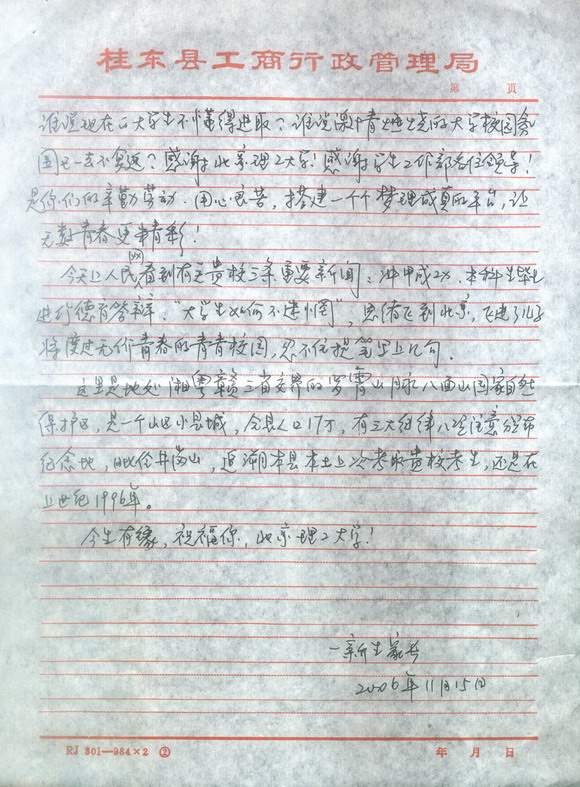 桂东县工商行政管理局
第 页
谁说现在的大学生不懂得进取？谁说激情燃烧的大学校园氛
围已一去不复返？感谢北京理工大学！感谢学生工作部各位领导！
是你们的辛勤劳动、用心良苦，搭建一个个梦想成真的平台，让
无数青春更精彩！
今天上人民网看到有关贵校三条重要新闻：冲甲成功、本科生毕业
进行德育答辩、“大学生如何不迷惘”，思绪飞到北京，飞进了儿子
将度过无价青春的青青校园，忍不住提笔写上几句。
这里是地处湘粤赣三省交界的罗霄山脉八面山国家自然
保护区，是一个山区小县城，全县人口17万，有三大纪律八项注意颁布
纪念地，毗伶井岗山，追溯本县本土上次考取贵校考生，还是在
上世纪1996年。
今生有缘，祝福你，北京理工大学！
一新生家长
2006年11月15日
RJ 301—984×2 ②
年 月 日